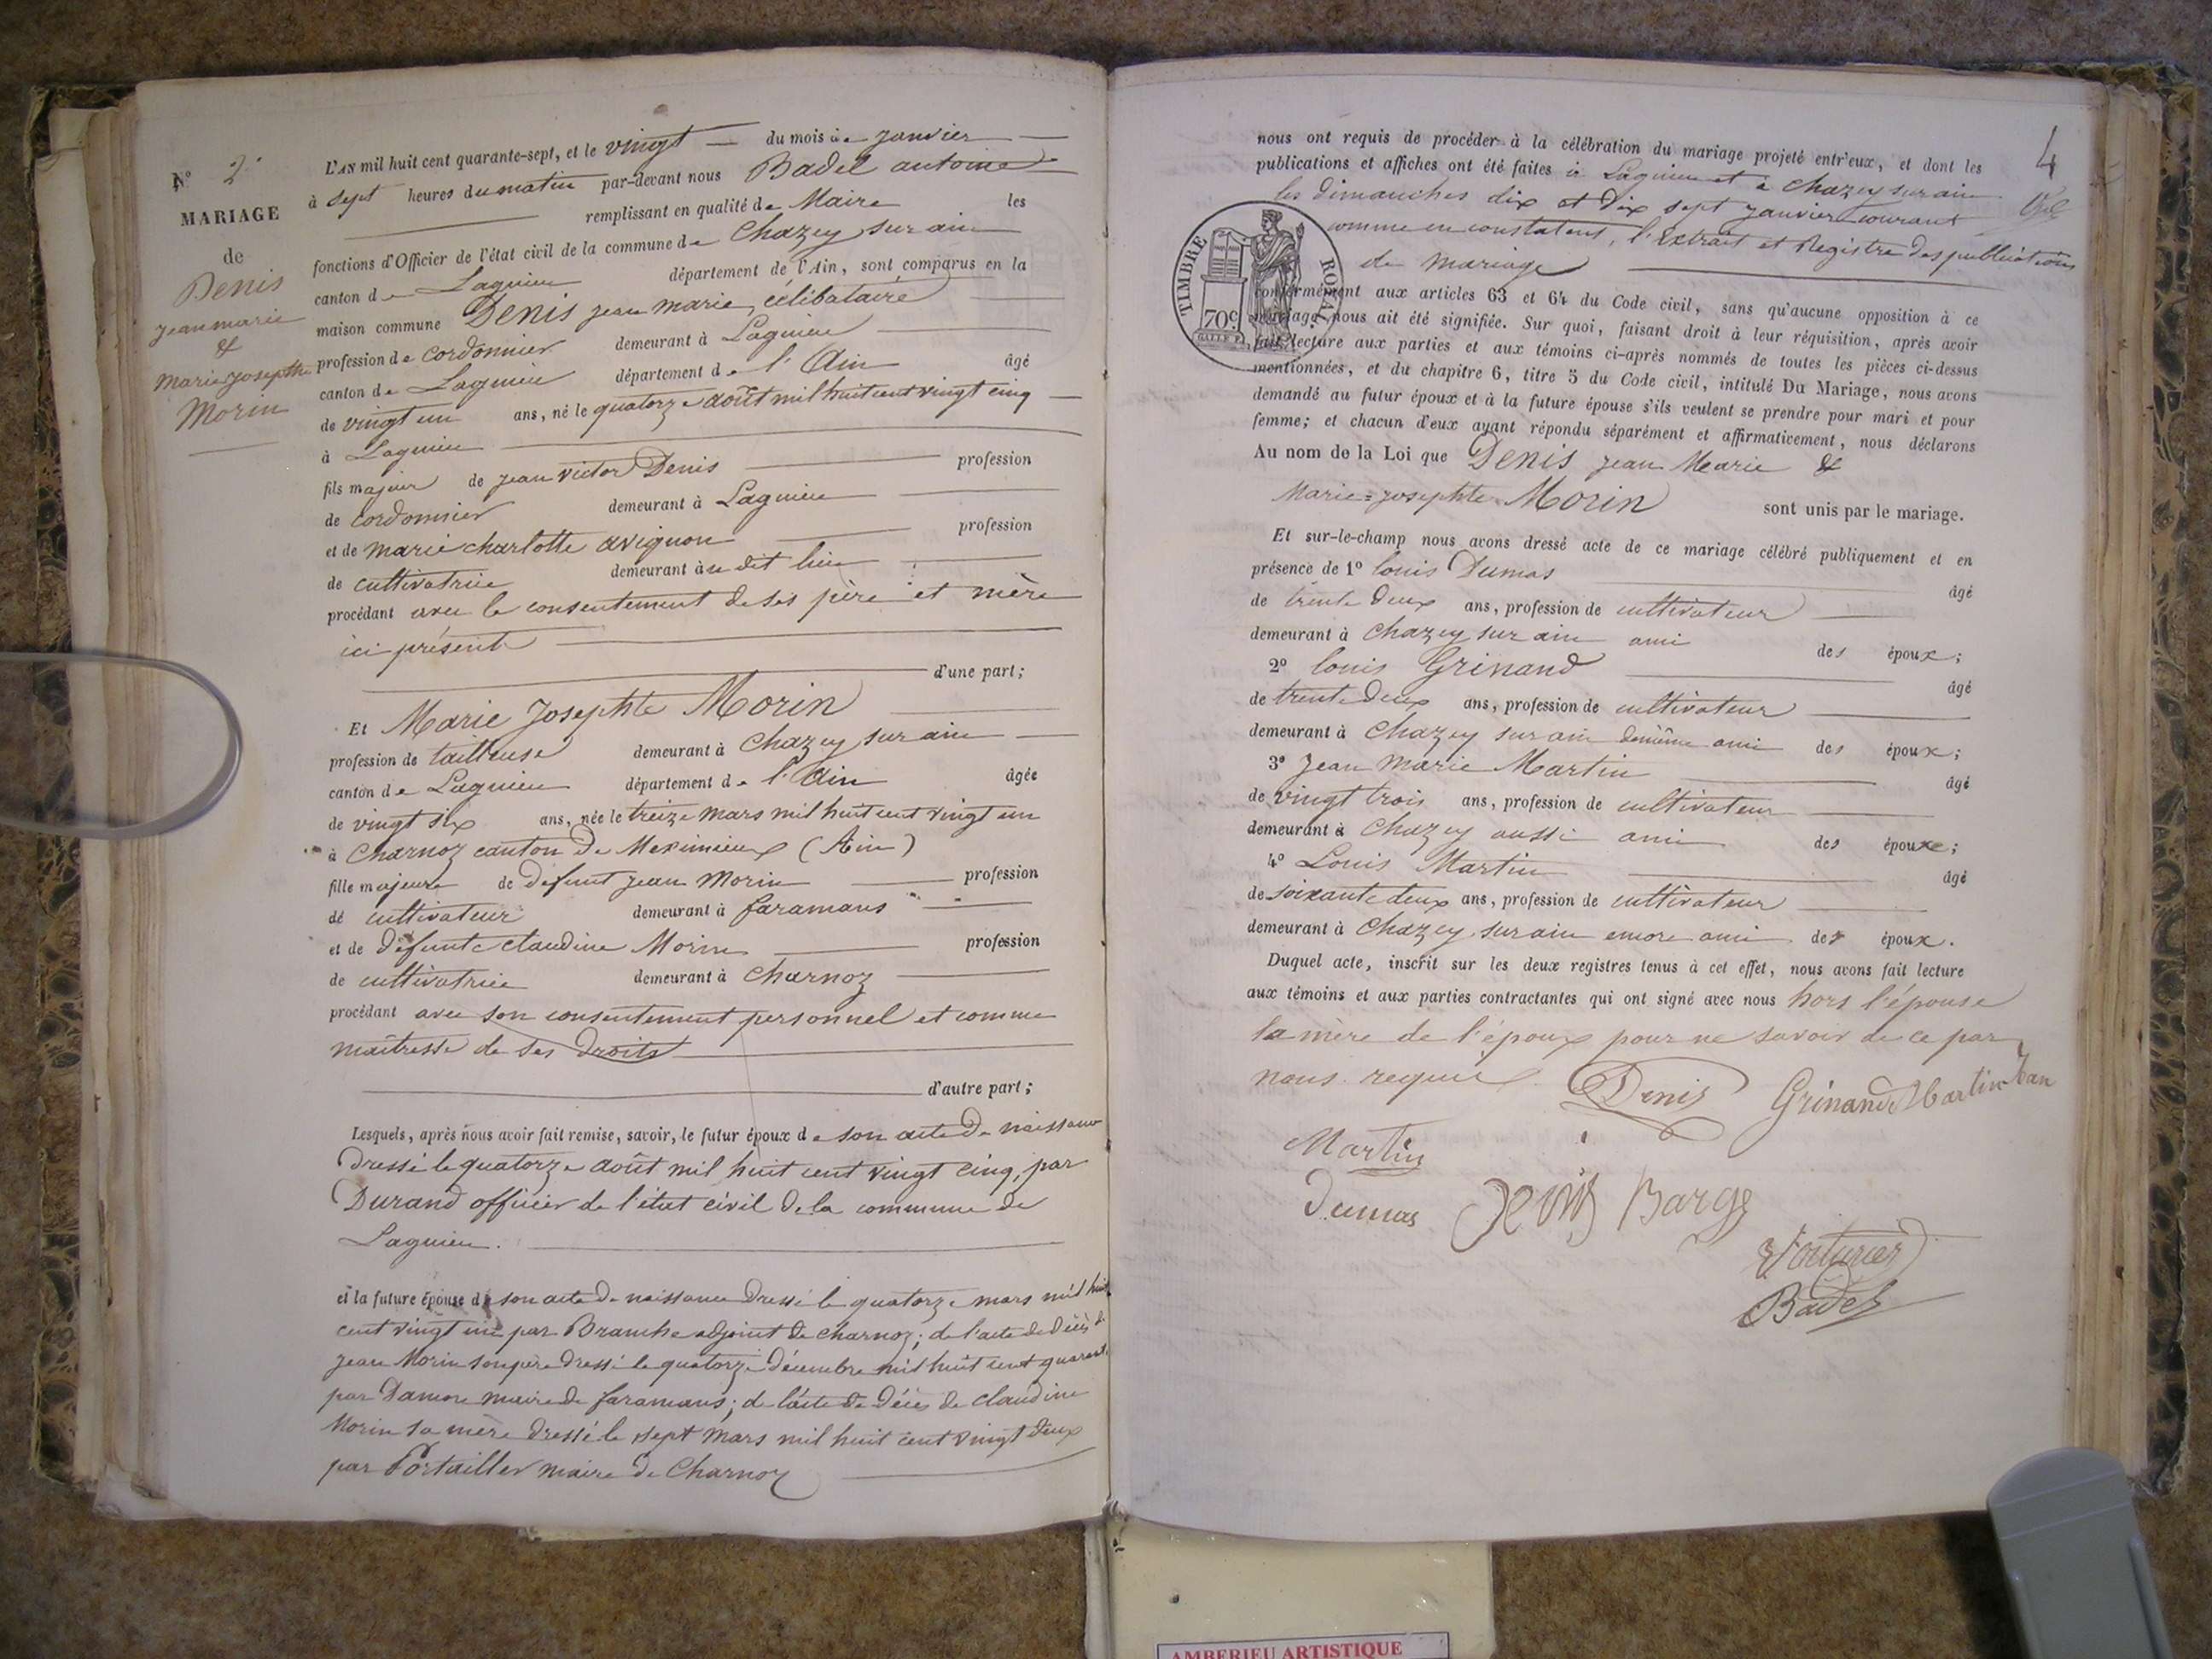 Nº 2
MARIAGE
de
Denis
jean marie
&
marie josephte
Morin
L'AN mil huit cent quarante-sept, et le vingt du mois de janvier
à sept heures du matin par-devant nous Badel antoine
remplissant en qualité de Maire les
fonctions d'Officier de l'état civil de la commune de Chazey sur ain
canton de Lagnieu département de l'Ain, sont comparus en la
maison commune Denis jean marie, célibataire
profession de cordonnier demeurant à Lagnieu
canton de Lagnieu département de l'Ain âgé
de vingt un ans, né le quatorze août mil huit cent vingt cinq
à Lagnieu
fils majeur de jean victor Denis profession
de cordonnier demeurant à Lagnieu
et de marie charlotte avignon profession
de cultivatrice demeurant àu dit lieu
procédant avec le consentement de ses père et mère
ici présents
d'une part;
Et Marie Josephte Morin
profession de tailleuse demeurant à Chazey sur ain
canton de Lagnieu département de l'Ain âgée
de vingt six ans, née le treize mars mil huit cent vingt un
à Charnoz canton de Meximieux (Ain)
fille majeure de defunt jean Morin profession
de cultivateur demeurant à faramans
et de défunte claudine Morin profession
de cultivatrice demeurant à Charnoz
procédant avec son consentement personnel et comme
maîtresse de ses droits
d'autre part;
Lesquels, après nous avoir fait remise, savoir, le futur époux de son acte de naissance
dressé le quatorze août mil huit cent vingt cinq, par
Durand officier de l'état civil de la commune de
Lagnieu.
et la future épouse de son acte de naissance dressé le quatorze mars mil huit
cent vingt un par Branche adjoint de Charnoz; de l'acte de décès de
jean Morin son père dressé le quatorze décembre mil huit cent quarante
par Damon maire de faramans; de l'acte de décès de claudine
Morin sa mère dressé le sept mars mil huit cent vingt deux
par Portailler maire de Charnoz
4
nous ont requis de procéder à la célébration du mariage projeté entr'eux, et dont les
publications et affiches ont été faites à Lagnieu et à Chazey sur ain
les dimanches dix et dix sept janvier courant
comme en constatent, l'extrait et Registre des publications
de mariage
TIMBRE ROYAL
70c
conformément aux articles 63 et 64 du Code civil, sans qu'aucune opposition à ce
mariage nous ait été signifiée. Sur quoi, faisant droit à leur réquisition, après avoir
fait lecture aux parties et aux témoins ci-après nommés de toutes les pièces ci-dessus
mentionnées, et du chapitre 6, titre 5 du Code civil, intitulé Du Mariage, nous avons
demandé au futur époux et à la future épouse s'ils veulent se prendre pour mari et pour
femme; et chacun d'eux ayant répondu séparément et affirmativement, nous déclarons
Au nom de la Loi que Denis jean Marie &
Marie=josephte Morin sont unis par le mariage.
Et sur-le-champ nous avons dressé acte de ce mariage célébré publiquement et en
présence de 1º louis Dumas âgé
de trente deux ans, profession de cultivateur
demeurant à Chazey sur ain ami des époux;
2º louis Grinand âgé
de trente deux ans, profession de cultivateur
demeurant à Chazey sur ain demême ami des époux;
3º Jean Marie Martin âgé
de vingt trois ans, profession de cultivateur
demeurant à Chazey aussi ami des époux;
4º Louis Martin âgé
de soixante deux ans, profession de cultivateur
demeurant à Chazey sur ain encore ami des époux.
Duquel acte, inscrit sur les deux registres tenus à cet effet, nous avons fait lecture
aux témoins et aux parties contractantes qui ont signé avec nous hors l'épouse
la mère de l'époux pour ne savoir de ce par
nous requis
Denis Grinand Martin Jean
Martin
Dumas Denis Barge
Voiturier
Badel
AMBERIEU ARTISTIQUE